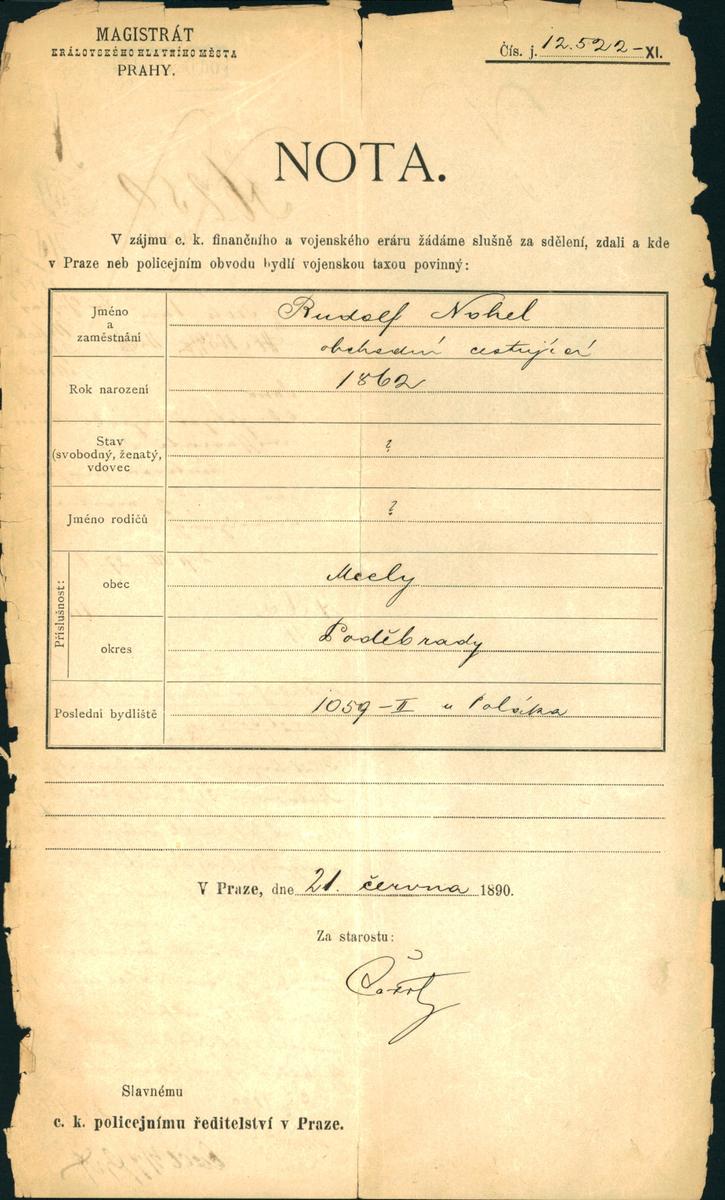 MAGISTRÁT
KRÁLOVSKÉHO HLAVNÍHO MĚSTA
PRAHY.
Čís. j. 12.522-XI.
NOTA.
V zájmu c. k. finančního a vojenského eráru žádáme slušně za sdělení, zdali a kde
v Praze neb policejním obvodu bydlí vojenskou taxou povinný:
Jméno
a
zaměstnání
Rudolf Nohel
obchodní cestující
Rok narození
1862
Stav
(svobodný, ženatý,
vdovec
?
Jméno rodičů
?
Příslušnost:
obec
Mcely
okres
Poděbrady
Poslední bydliště
1059-II u Poláka
V Praze, dne 21. června 1890.
Za starostu:
Slavnému
c. k. policejnímu ředitelství v Praze.